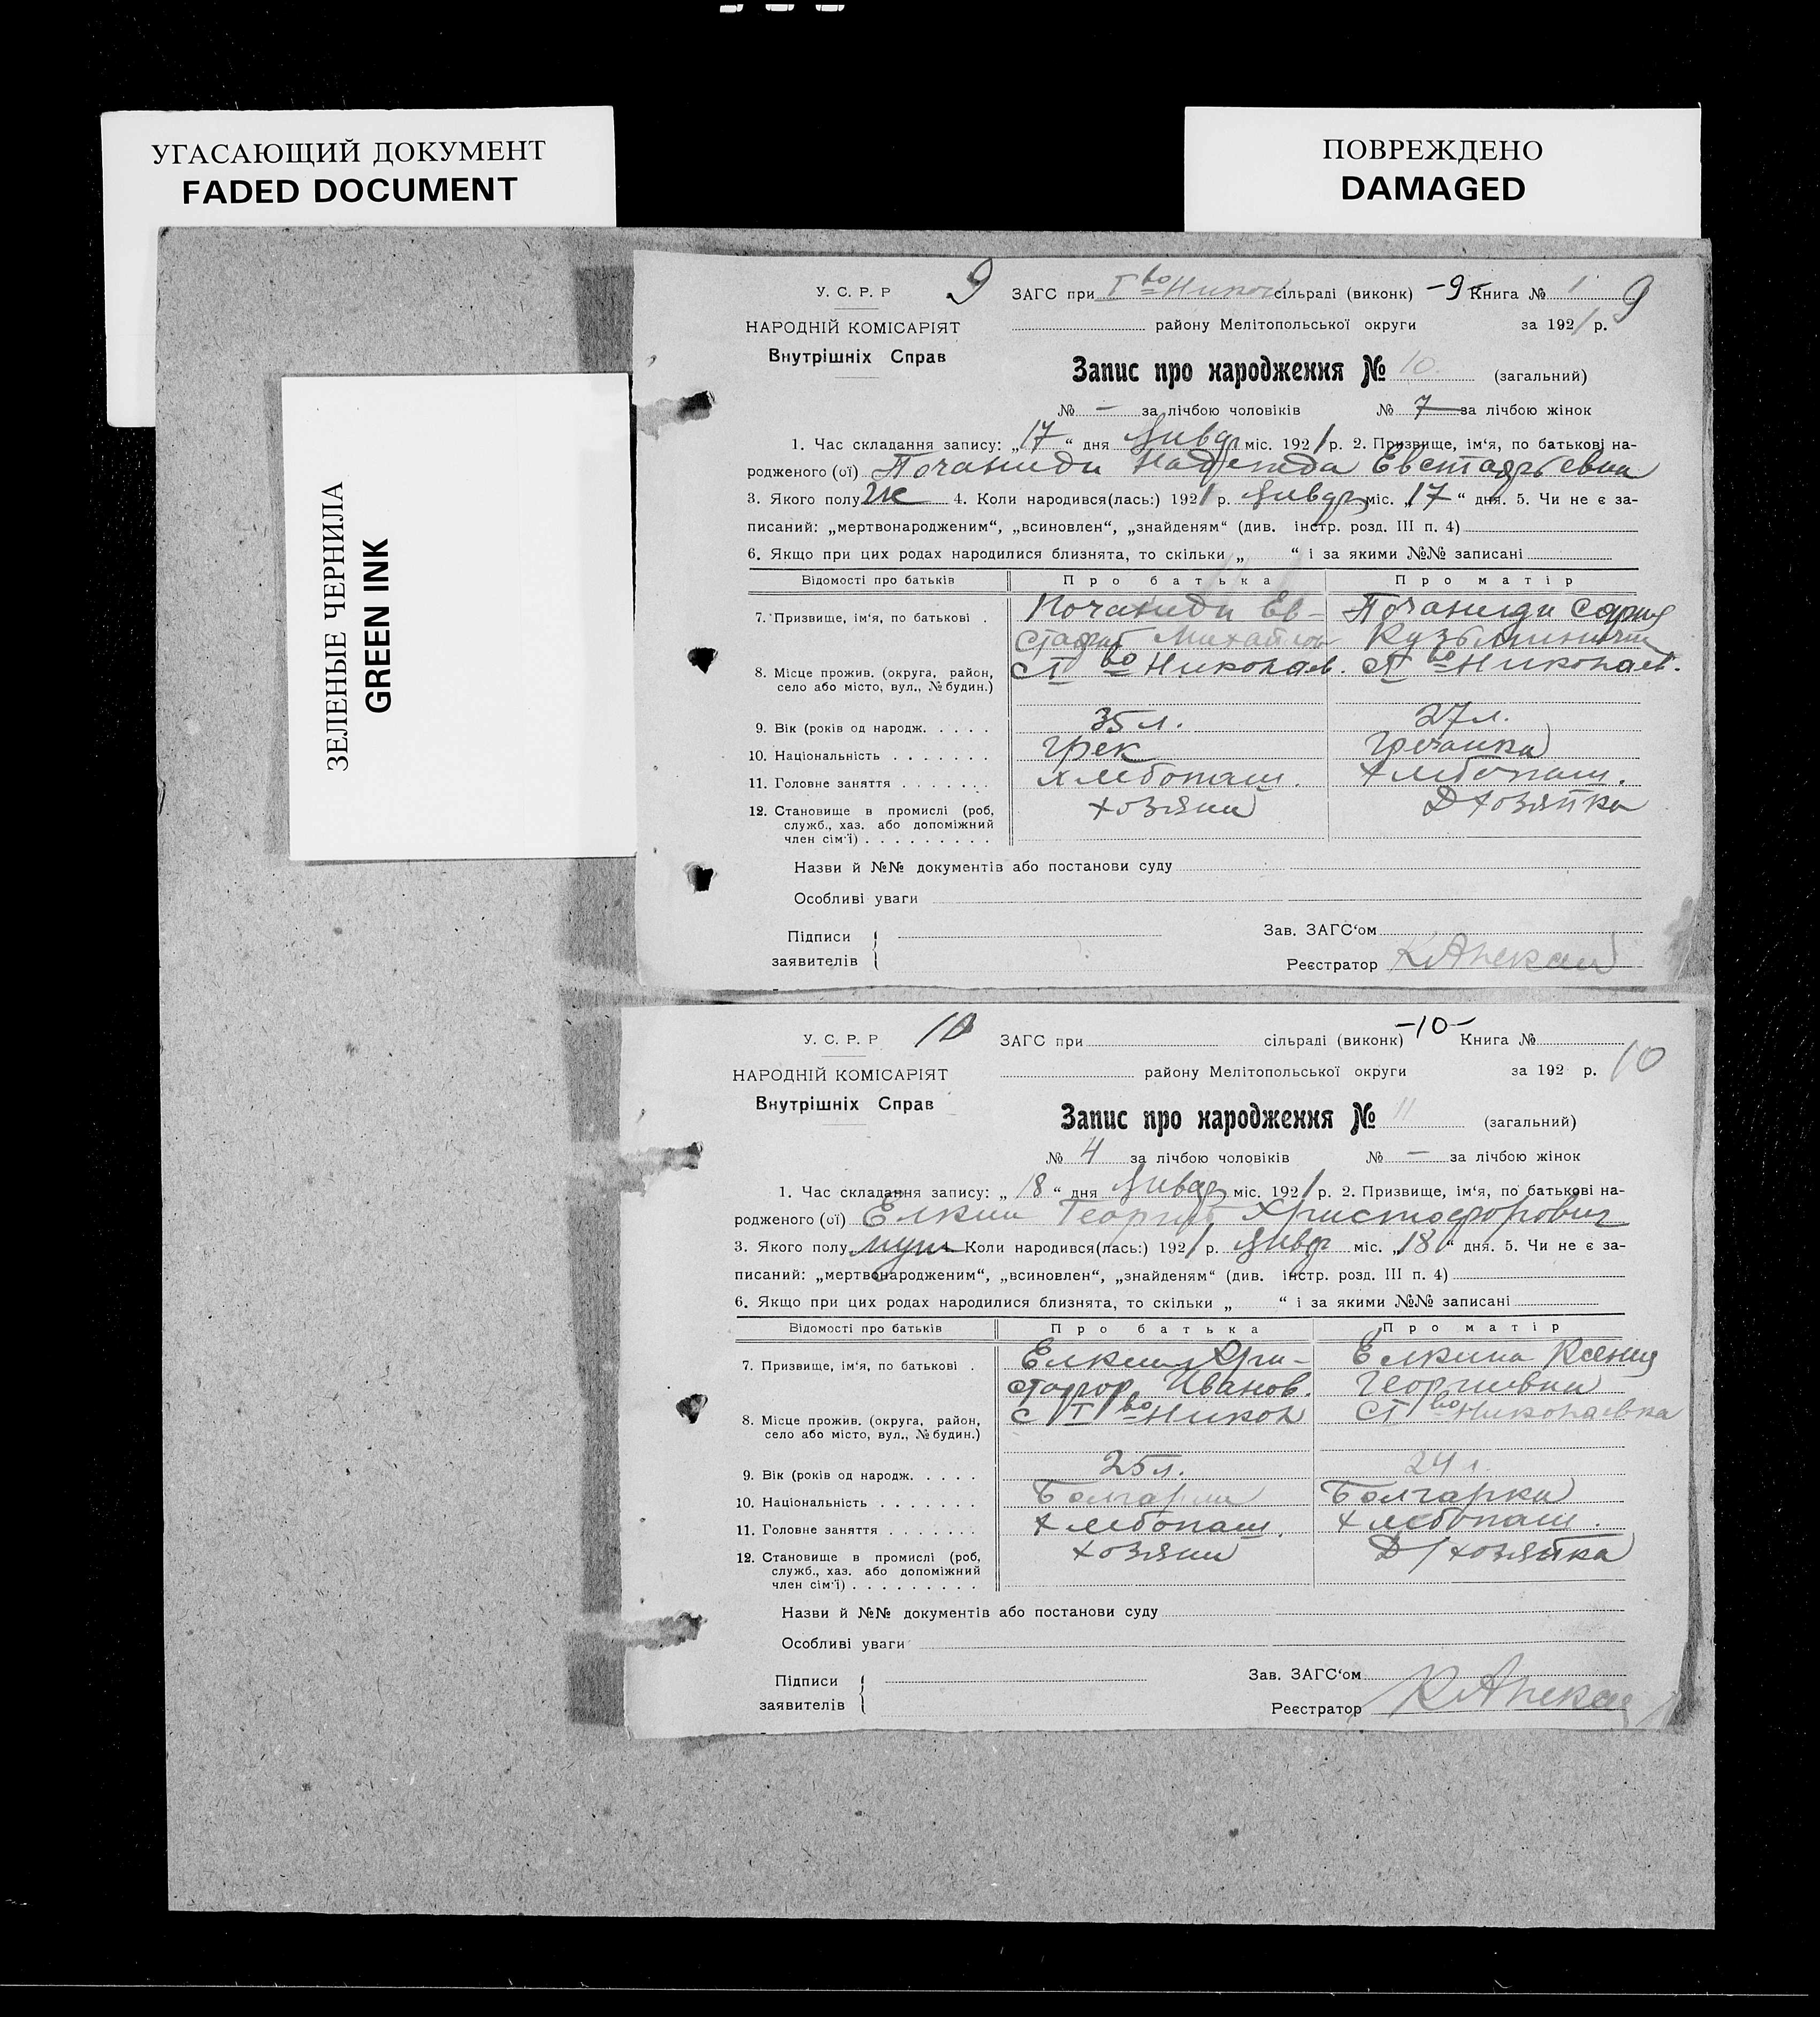 УГАСАЮЩИЙ ДОКУМЕНТ
FADED DOCUMENT
ПОВРЕЖДЕНО
DAMAGED
ЗЕЛЕНЫЕ ЧЕРНИЛА
GREEN INK
У. С. Р. Р 9 ЗАГС при сільраді (виконк) -9- Книга № 1 9
НАРОДНІЙ КОМІСАРІЯТ району Мелітопольської округи за 1921 р.
Внутрішніх Справ
Запис про народження № 10 (загальний)
№ — за лічбою чоловіків № 7 за лічбою жінок
1. Час складання запису: „17“ дня Январ міс. 1921 р. 2. Призвище, ім‘я, по батькові на-
родженого (ої) Почаниди Надежда Евстафьевна
3. Якого полу ж 4. Коли народився(лась:) 1921 р. Январ міс. „17“ дня. 5. Чи не є за-
писаний: „мертвонародженим“, „всиновлен“, „знайденям“ (див. інстр. розд. III п. 4)
6. Якщо при цих родах народилися близнята, то скільки „ “ і за якими №№ записані
Відомості про батьків Про батька Про матір
7. Призвище, ім‘я, по батькові . Почаниди Ев- Почаниди София
стафий Михайлов Кузьминична
8. Місце прожив. (округа, район, село або місто, вул., № будин.) Николаев. Николаев.
9. Вік (років од народж. . . . . 35 л. 27 л.
10. Національність . . . . . . . Грек Гречанка
11. Головне заняття . . . . . . . Хлебопаш. Хлебопаш.
12. Становище в промислі (роб, служб., хаз. або допоміжний член сім‘ї) . . . . . . . . . Хозяин Д Хозяйка
Назви й №№ документів або постанови суду
Особливі уваги
Підписи Зав. ЗАГС‘ом
заявителів Реєстратор
У. С. Р. Р 10 ЗАГС при сільраді (виконк) -10- Книга №
НАРОДНІЙ КОМІСАРІЯТ району Мелітопольської округи за 192 р. 10
Внутрішніх Справ
Запис про народження № 11 (загальний)
№ 4 за лічбою чоловіків № — за лічбою жінок
1. Час складання запису: „18“ дня Январ міс. 1921 р. 2. Призвище, ім‘я, по батькові на-
родженого (ої) Елкин Георгий Христофорович
3. Якого полу муж 4. Коли народився(лась:) 1921 р. Январ міс. „18“ дня. 5. Чи не є за-
писаний: „мертвонародженим“, „всиновлен“, „знайденям“ (див. інстр. розд. III п. 4)
6. Якщо при цих родах народилися близнята, то скільки „ “ і за якими №№ записані
Відомості про батьків Про батька Про матір
7. Призвище, ім‘я, по батькові . Елкин Хри- Елкина Ксения
стофор Иванов. Георгиевна
8. Місце прожив. (округа, район, село або місто, вул., № будин.) Никол Николаевка
9. Вік (років од народж. . . . . 25 л. 24 л.
10. Національність . . . . . . . Болгарин Болгарка
11. Головне заняття . . . . . . . Хлебопаш. Хлебопаш.
12. Становище в промислі (роб, служб., хаз. або допоміжний член сім‘ї) . . . . . . . . . Хозяин Д/хозяйка
Назви й №№ документів або постанови суду
Особливі уваги
Підписи Зав. ЗАГС‘ом
заявителів Реєстратор